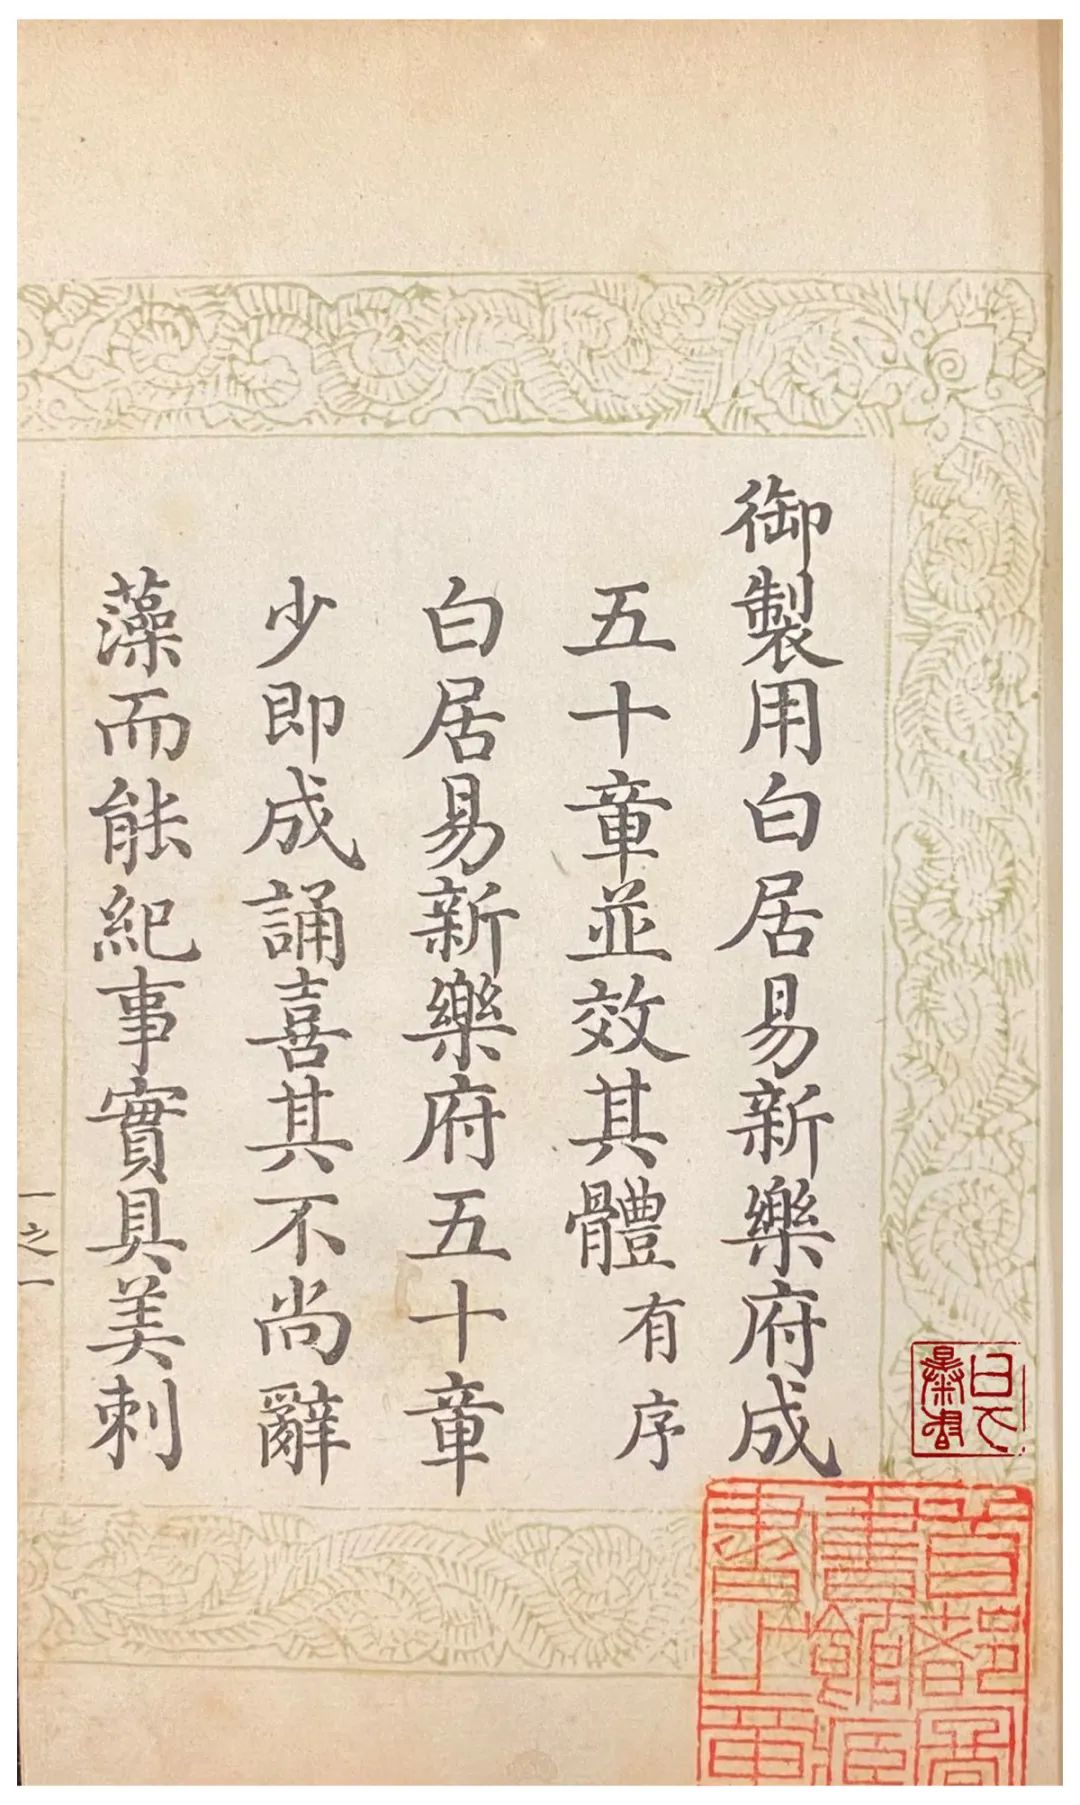 御製用白居易新樂府成
五十章並效其體有序
白居易新樂府五十章
少即成誦喜其不尚辭
藻而能紀事實具美刺
一之一
首都圖
書館藏
書之章